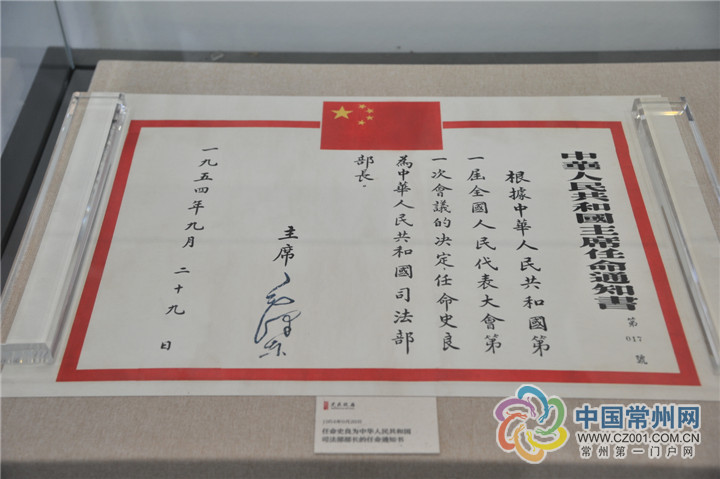 中華人民共和國主席任命通知書
第017號
根據中華人民共和國第
一屆全國人民代表大會第
一次會議的决定,任命史良
為中華人民共和國司法部
部長.
主席
毛澤東
一九五四年九月二十九日
任命史良为中华人民共和国
司法部部长的任命通知书
中国常州网
WWW.CZ001.COM
常州第一门户网